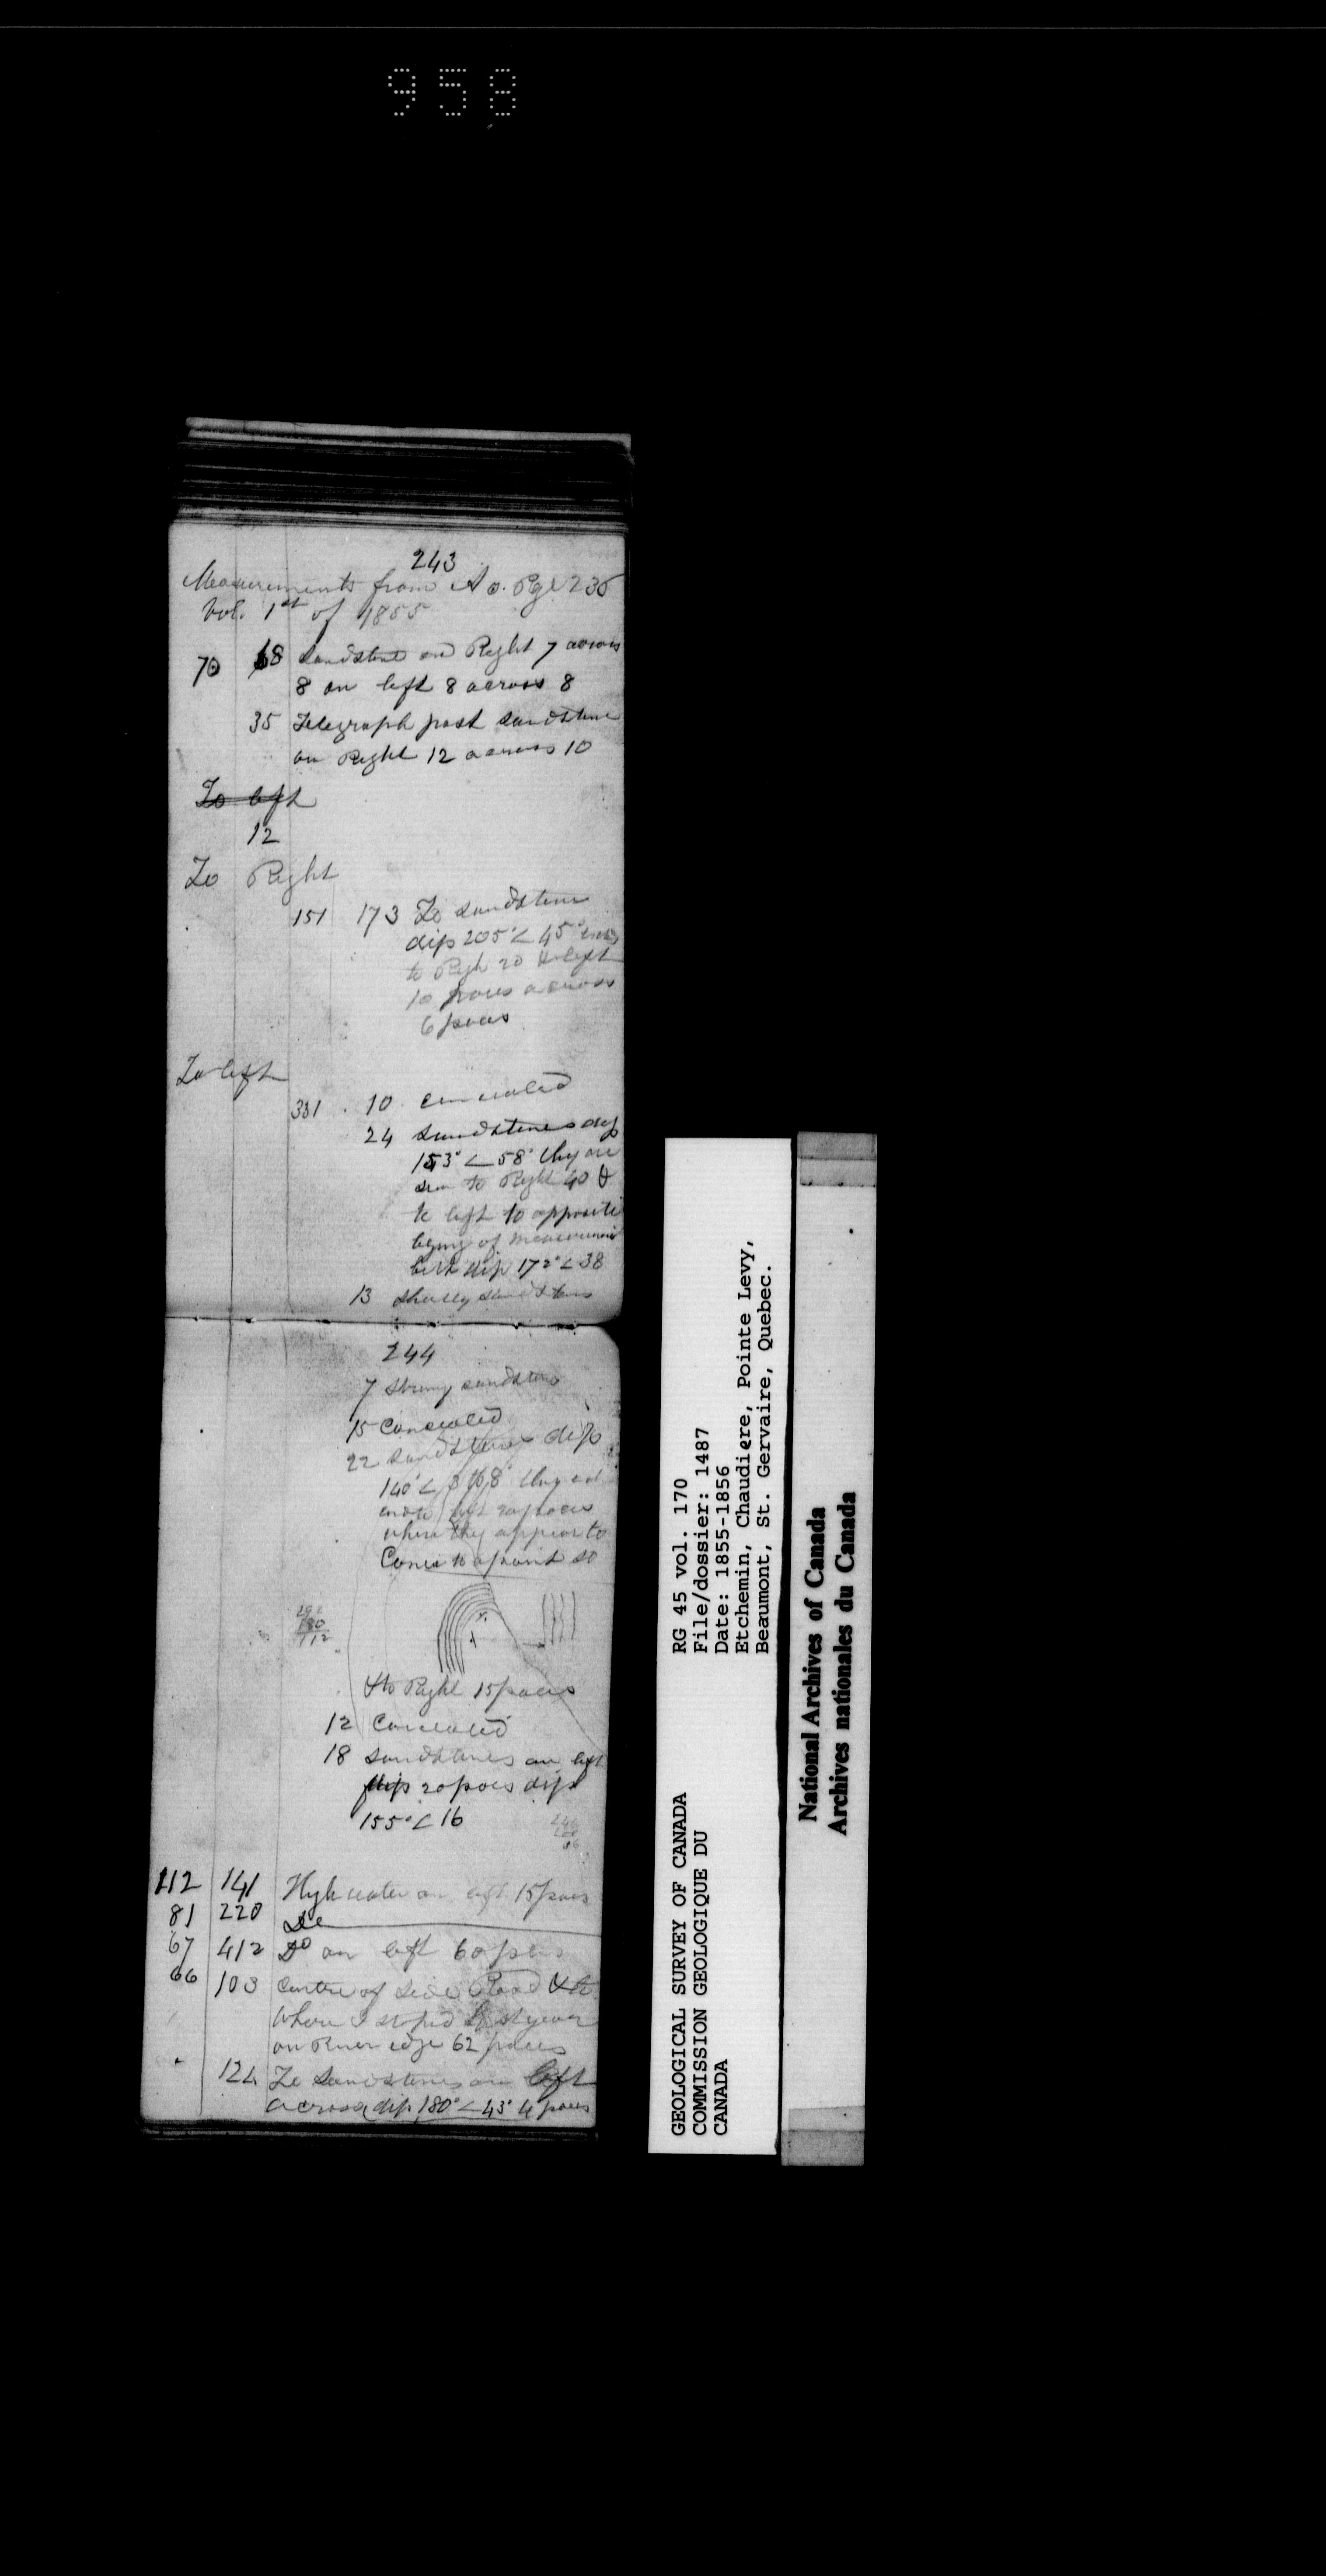 958
243
Measurements from A o. Pge 235
Vol. 1st of 1855
70 68 Sandstone on Right 7 across
8 on left 8 across 8
35 Telegraph post sandstone
on Right 12 across 10
To left
12
To Right
151 173 To sandstone
dip 205°∠45°
to Righ 20 & left
10 paces across
6 paces
To left
331 10 concealed
24 Sandstones dip
153°∠58° they are
seen to Right 40 &
to left to opposite
begng of measurement
dip 172°∠38
13 shaley sandstone
244
7 sandstone
15 Concealed
22 sandstones dip
140°∠
left paces
where they appear to
Come to a point so
292
180
112
& to Right 15 paces
12 Concealed
18 Sandstones on left
20 paces dip
155°∠16
112 141 High water on left 15 paces
81 220 Do
67 412 Do on left 60 paces
66 103 Centre of side Road & to
where I stoped last year
on River edge 62 paces
124 To Sandstones on left
across dip 180°∠43° 4 paces
RG 45 vol. 170
File/dossier: 1487
Date: 1855-1856
Etchemin, Chaudiere, Pointe Levy,
Beaumont, St. Gervaire, Quebec.
GEOLOGICAL SURVEY OF CANADA
COMMISSION GEOLOGIQUE DU
CANADA
National Archives of Canada
Archives nationales du Canada